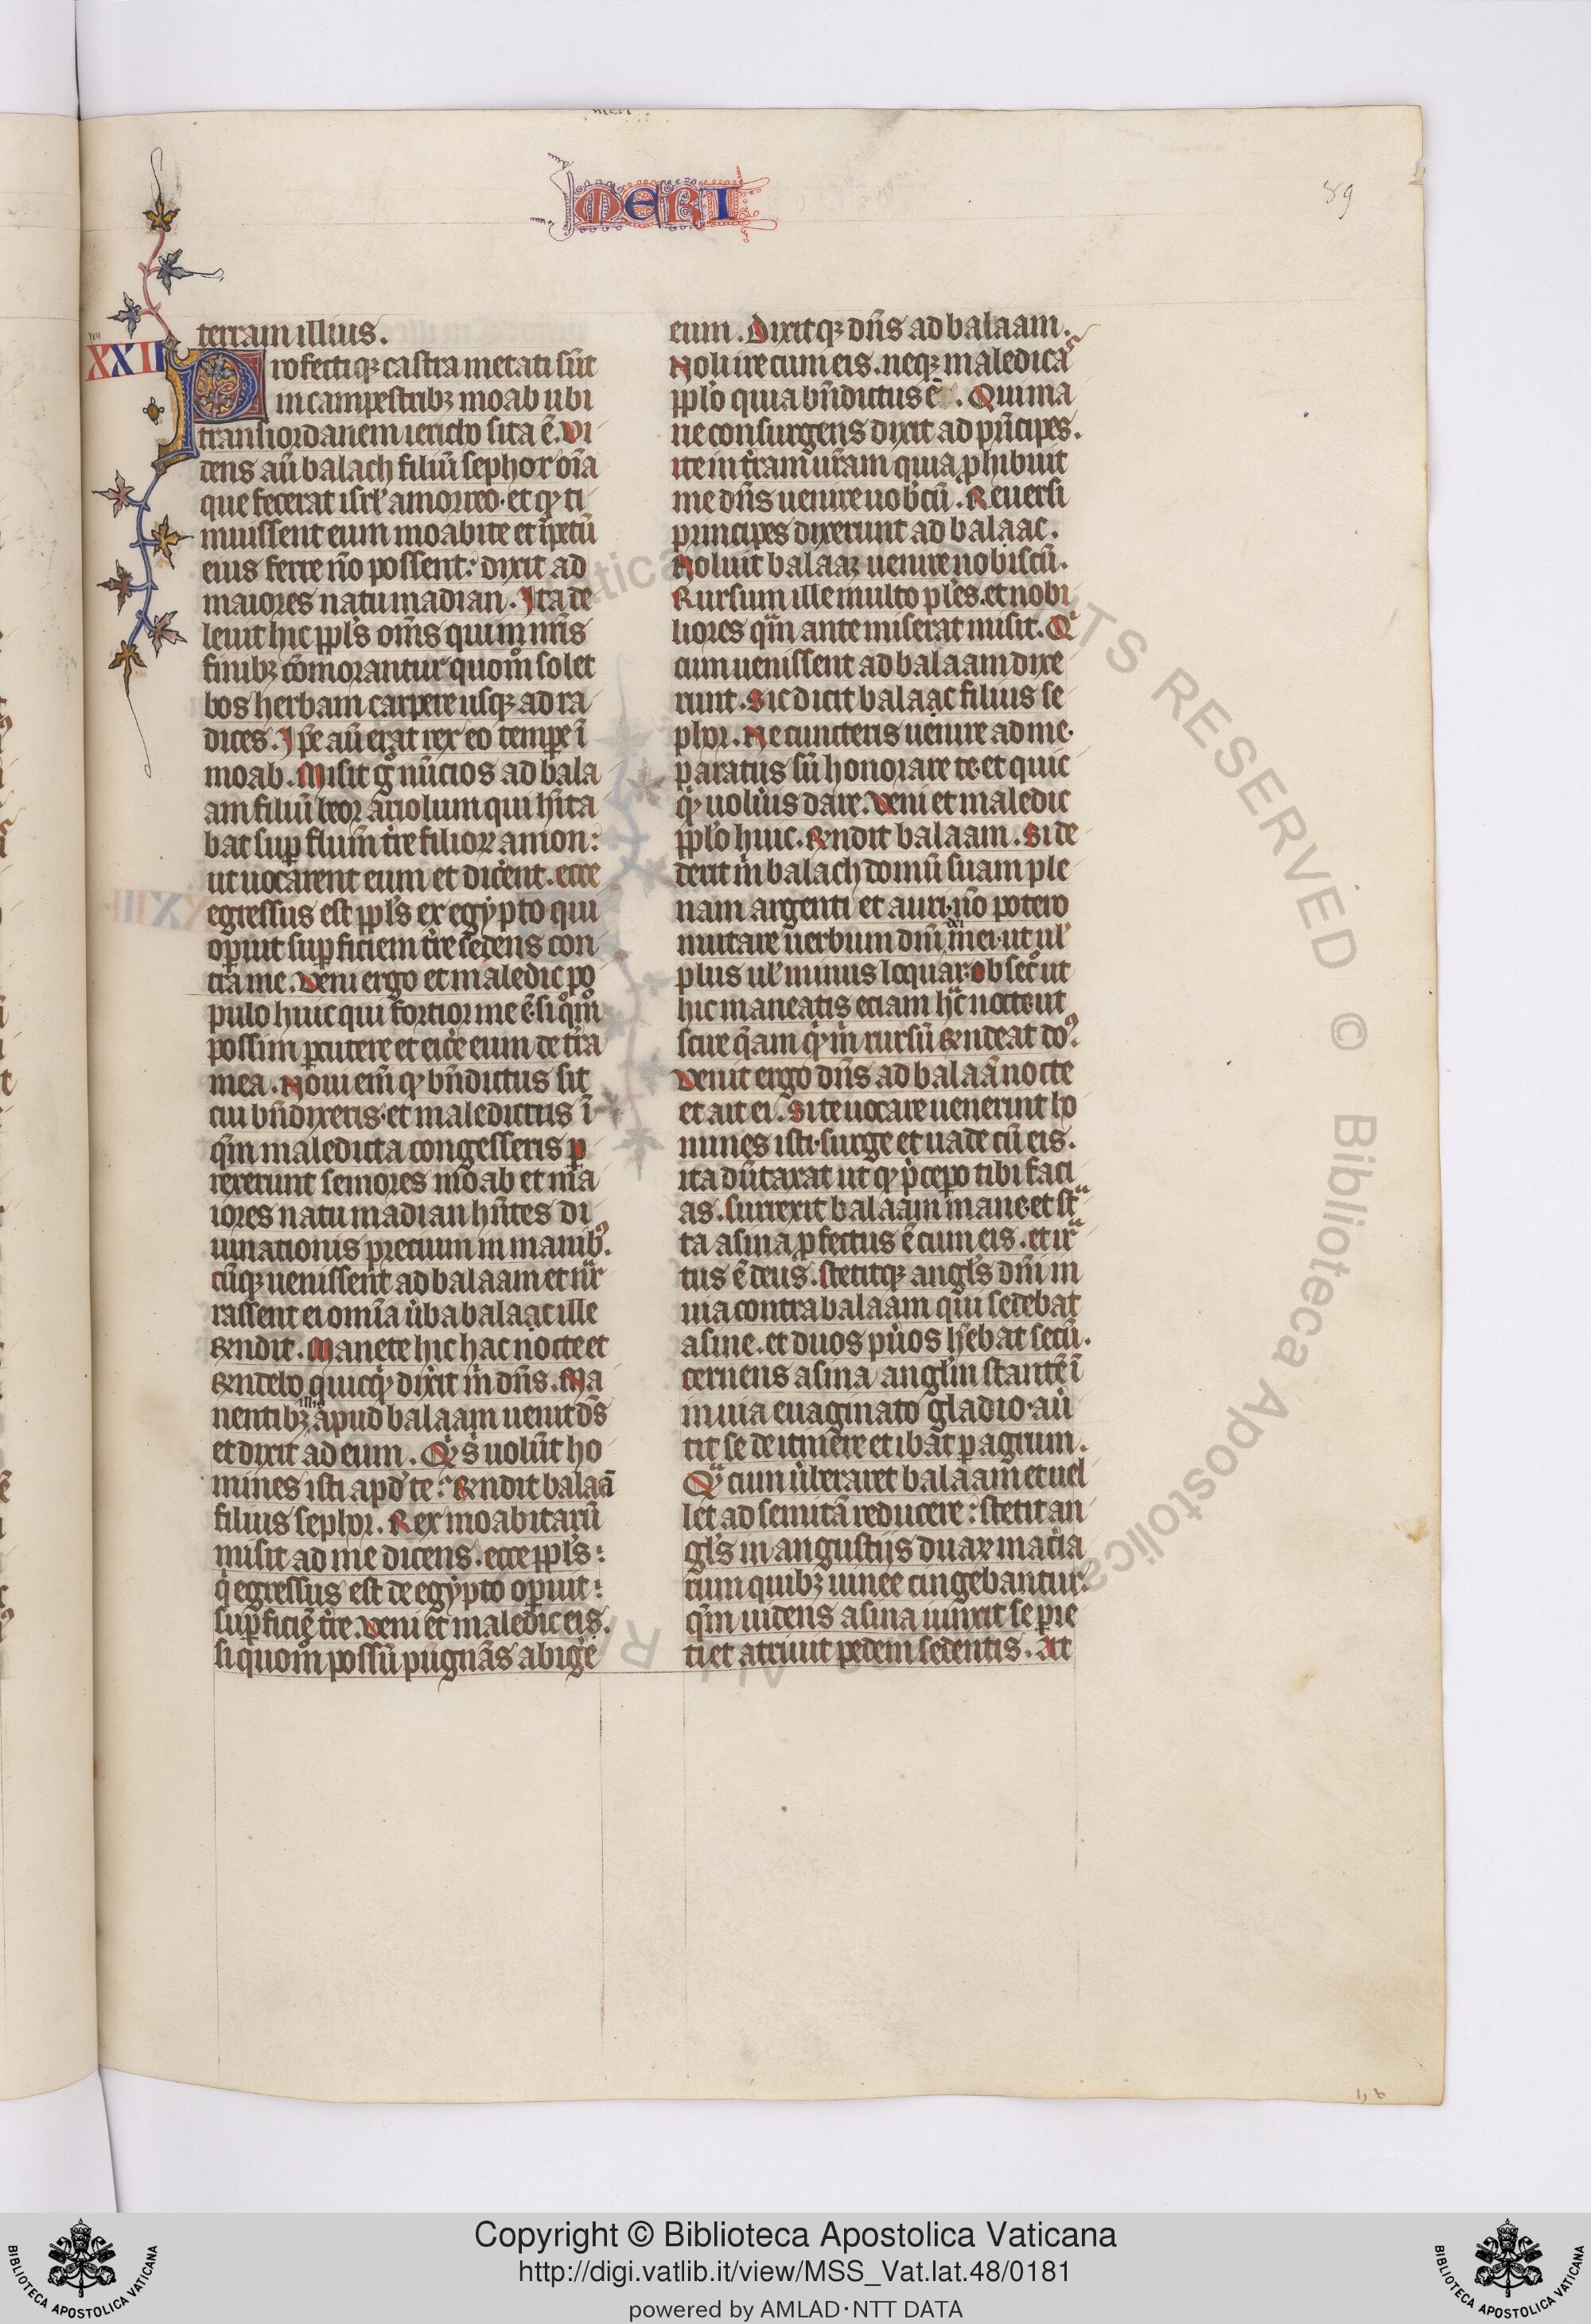 MERI
89
XXII
terram illius.
Profectiqz castra metati sūt
in campestribz moab ubi
trans iordanem iericho sita ē. Vi
dens aū balach filiū sephor oīa
que fecerat isrl' amorreo. et qꝫ ti
muissent eum moabite et īpetū
eius ferre nō possent: dixit ad
maiores natu madian. Ita de
leuit hic ppl's om̄s qui in nr̄is
finibz cōmorantur quom̊ solet
bos herbam carpere usqz ad ra
dices. Ip̄e aū erat rex eo tempe ī
moab. Misit gͦ nūcios ad bala
am filiū beor ariolum qui hīta
bat sup flum̄ tr̄e filioꝝ amon:
ut uocarent eum et dicēnt. ecce
egressus est ppl's ex egypto qui
opuit supficiem tr̄e sedens con
tra me. Veni ergo et maledic po
pulo huic qui fortior me ē. si qͦm̊
possim pcutere et eicēe eum de tr̄a
mea. Noui eni̅ qꝫ bn̄dictus sit
cui bn̄dixeris. et maledictus ī
qm̄ maledicta congesseris p
rexerunt seniores moab et ma
iores natu madian hn̄tes di
uinationis precium in manibꝰ.
cūqz uenissent ad balaam et nͣr
rassent ei omīa ūba balaac ille
rn̄dit. Manete hic hac nocte et
rn̄debo quicqͥd dixit m̄ dn̄s. Ma
nentibz illis apud balaam uenit ds̄
et dixit ad eum. Qͥd s̄ uolūt ho
mines isti apd' te: rn̄dit balaā
filius sephor. Rex moabitarū
misit ad me dicens. ecce ppl's:
qͥ egressus est de egypto opuit:
supficiē tr̄e. Veni et maledic eis.
si quom̊ possū pugnās abigē
eum. Dixitqz dn̄s ad balaam.
Noli ire cum eis. neqz maledicas
pplo quia bn̄dictus ē. Qui ma
ne consurgens dixit ad pn̄cipes.
ite in tr̄am ur̄am quia phibuit
me dn̄s uenire uob'cū. Reuersi
principes dixerunt ad balaac.
Noluit balaaꝫ uenire nobiscū.
Rursum ille multo pl'es. et nobi
liores qͣm ante miserat misit. Qͥ
cum uenissent ad balaam dixe
runt. Sic dicit balaac filius se
phor. Ne cuncteris uenire ad me.
paratus sū honorare te. et quic
qͥd uolu'is dare. Veni et maledic
pplo huic. Rn̄dit balaam. Si de
derit m̄ balach domū suam ple
nam argenti et auri. nō potero
mutare uerbum dn̄i dei mei. ut ul'
plus ul' minus loquar. obsecͦ ut
hic maneatis eciam hͣc nocte. ut
scire qͣam qͥd m̄ rursū rn̄deat doꝰ.
Venit ergo dn̄s ad balaā nocte
et ait ei. Si te uocare uenerint ho
mines isti. surge et uade cū eis.
ita dūtaxat ut qꝫ p̄cepo tibi faci
as. surrexit balaam mane. et stͣ
ta asina pfectus ē cum eis. et irͣ
tus ē deus. stetitqz angl's dn̄i in
uia contra balaam qui sedebat
asine. et duos pūos h̄ebat secū.
cernens asina angl'm stantē ī
in uia euaginato gladio. aū
tit se de itinēre et ibat p agrum.
Qͣ cum ūberaret balaam et uel
let ad semitā reducere: stetit an
gl's in angustijs duaꝝ maciā
rum quibz uinee cingebantur.
qͣm uidens asina iunxit se pie
ti et atriuit pedem sedentis. At
Copyright © Biblioteca Apostolica Vaticana
http://digi.vatlib.it/view/MSS_Vat.lat.48/0181
powered by AMLAD·NTT DATA
BIBLIOTECA APOSTOLICA VATICANA
BIBLIOTECA APOSTOLICA VATICANA